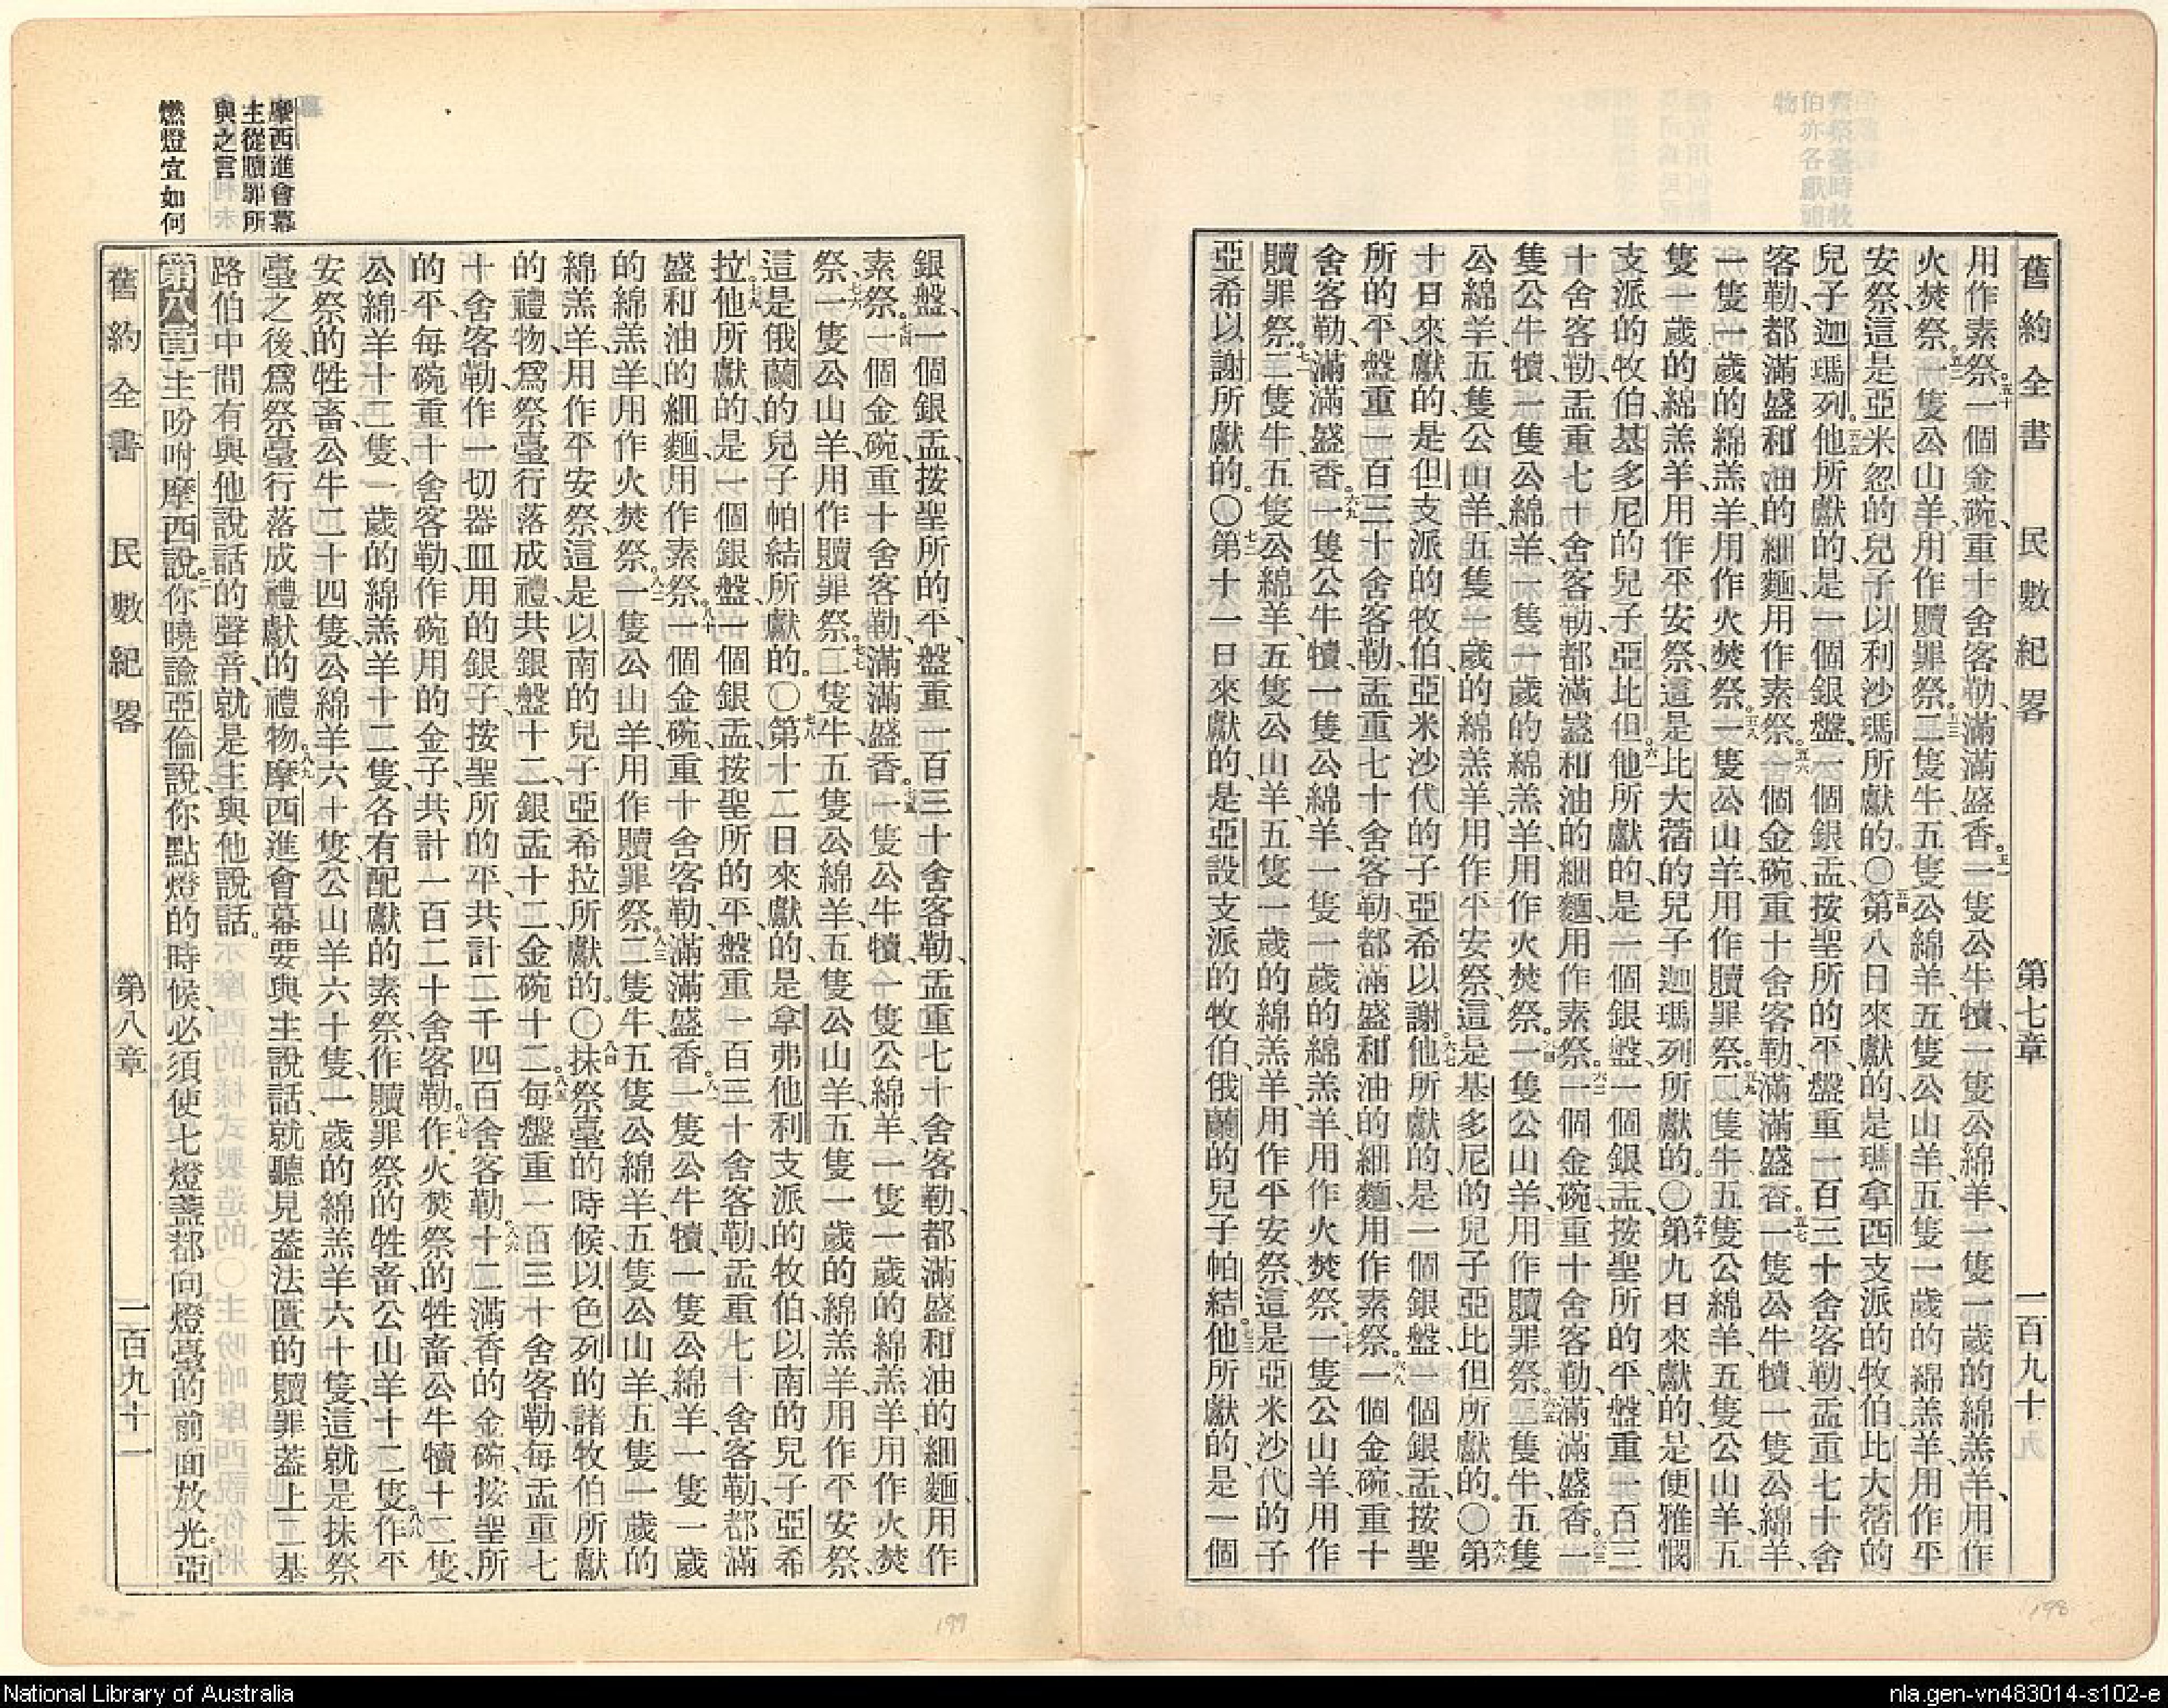 舊約全書 民數紀畧 第七章 一百九十
用作素祭。五十一個金碗、重十舍客勒、滿滿盛香。五一一隻公牛犢、一隻公綿羊、一隻一歲的綿羔羊、用作
火焚祭。五二一隻公山羊、用作贖罪祭。五三二隻牛、五隻公綿羊、五隻公山羊、五隻一歲的綿羔羊、用作平
安祭、這是亞米忽的兒子以利沙瑪所獻的。〇五四第八日來獻的、是瑪拿西支派的牧伯、比大蓿的
兒子迦瑪列。五五他所獻的、是一個銀盤、一個銀盂、按聖所的平、盤重一百三十舍客勒、盂重七十舍
客勒、都滿盛和油的細麵、用作素祭。五六一個金碗、重十舍客勒、滿滿盛香。五七一隻公牛犢、一隻公綿羊、
一隻一歲的綿羔羊、用作火焚祭。五八一隻公山羊、用作贖罪祭。五九二隻牛、五隻公綿羊、五隻公山羊、五
隻一歲的綿羔羊、用作平安祭、這是比大蓿的兒子迦瑪列所獻的。〇六十第九日來獻的、是便雅憫
支派的牧伯、基多尼的兒子亞比但。六一他所獻的、是一個銀盤、一個銀盂、按聖所的平、盤重一百三
十舍客勒、盂重七十舍客勒、都滿盛和油的細麵、用作素祭。六二一個金碗、重十舍客勒、滿滿盛香。六三一
隻公牛犢、一隻公綿羊、一隻一歲的綿羔羊、用作火焚祭。六四一隻公山羊、用作贖罪祭。六五二隻牛、五隻
公綿羊、五隻公山羊、五隻一歲的綿羔羊、用作平安祭、這是基多尼的兒子亞比但所獻的。〇六六第
十日來獻的、是但支派的牧伯、亞米沙代的子亞希以謝。六七他所獻的、是一個銀盤、一個銀盂、按聖
所的平、盤重一百三十舍客勒、盂重七十舍客勒、都滿盛和油的細麵、用作素祭。六八一個金碗、重十
舍客勒、滿滿盛香。六九一隻公牛犢、一隻公綿羊、一隻一歲的綿羔羊、用作火焚祭。七十一隻公山羊、用作
贖罪祭。七一二隻牛、五隻公綿羊、五隻公山羊、五隻一歲的綿羔羊、用作平安祭、這是亞米沙代的子
亞希以謝所獻的。〇七二第十一日來獻的、是亞設支派的牧伯、俄蘭的兒子帕結。七三他所獻的、是一個
198
銀盤、一個銀盂、按聖所的平、盤重一百三十舍客勒、盂重七十舍客勒、都滿盛和油的細麵、用作
素祭。七四一個金碗、重十舍客勒、滿滿盛香。七五一隻公牛犢、一隻公綿羊、一隻一歲的綿羔羊、用作火焚
祭。七六一隻公山羊、用作贖罪祭。七七二隻牛、五隻公綿羊、五隻公山羊、五隻一歲的綿羔羊、用作平安祭、
這是俄蘭的兒子帕結所獻的。〇七八第十二日來獻的、是拿弗他利支派的牧伯、以南的兒子亞希
拉。七九他所獻的、是一個銀盤、一個銀盂、按聖所的平、盤重一百三十舍客勒、盂重七十舍客勒、都滿
盛和油的細麵、用作素祭。八十一個金碗、重十舍客勒、滿滿盛香。八一一隻公牛犢、一隻公綿羊、一隻一歲
的綿羔羊、用作火焚祭。八二一隻公山羊、用作贖罪祭。八三二隻牛、五隻公綿羊、五隻公山羊、五隻一歲的
綿羔羊、用作平安祭、這是以南的兒子亞希拉所獻的。〇八四抹祭臺的時候、以色列的諸牧伯所獻
的禮物、爲祭臺行落成禮、共銀盤十二、銀盂十二、金碗十二。八五每盤重一百三十舍客勒、每盂重七
十舍客勒、作一切器皿用的銀子、按聖所的平、共計二千四百舍客勒。八六十二滿香的金碗、按聖所
的平、每碗重十舍客勒、作碗用的金子、共計一百二十舍客勒。八七作火焚祭的牲畜、公牛犢十二隻、
公綿羊十二隻、一歲的綿羔羊十二隻、各有配獻的素祭、作贖罪祭的牲畜、公山羊十二隻。八八作平
安祭的牲畜、公牛二十四隻、公綿羊六十隻、公山羊六十隻、一歲的綿羔羊六十隻、這就是抹祭
臺之後、爲祭臺行落成禮獻的禮物。八九摩西進會幕、要與主說話、就聽見葢法匱的贖罪葢上二基
路伯中間、有與他說話的聲音、就是主與他說話。
第八章一主吩咐摩西說、二你曉諭亞倫說、你點燈的時候、必須使七燈盞都向燈臺的前面放光。亞
舊約全書 民數紀畧 第八章 一百九十一
摩西進會幕
主從贖罪所
與之言
燃燈宜如何
199
National Library of Australia
nla.gen-vn483014-s102-e